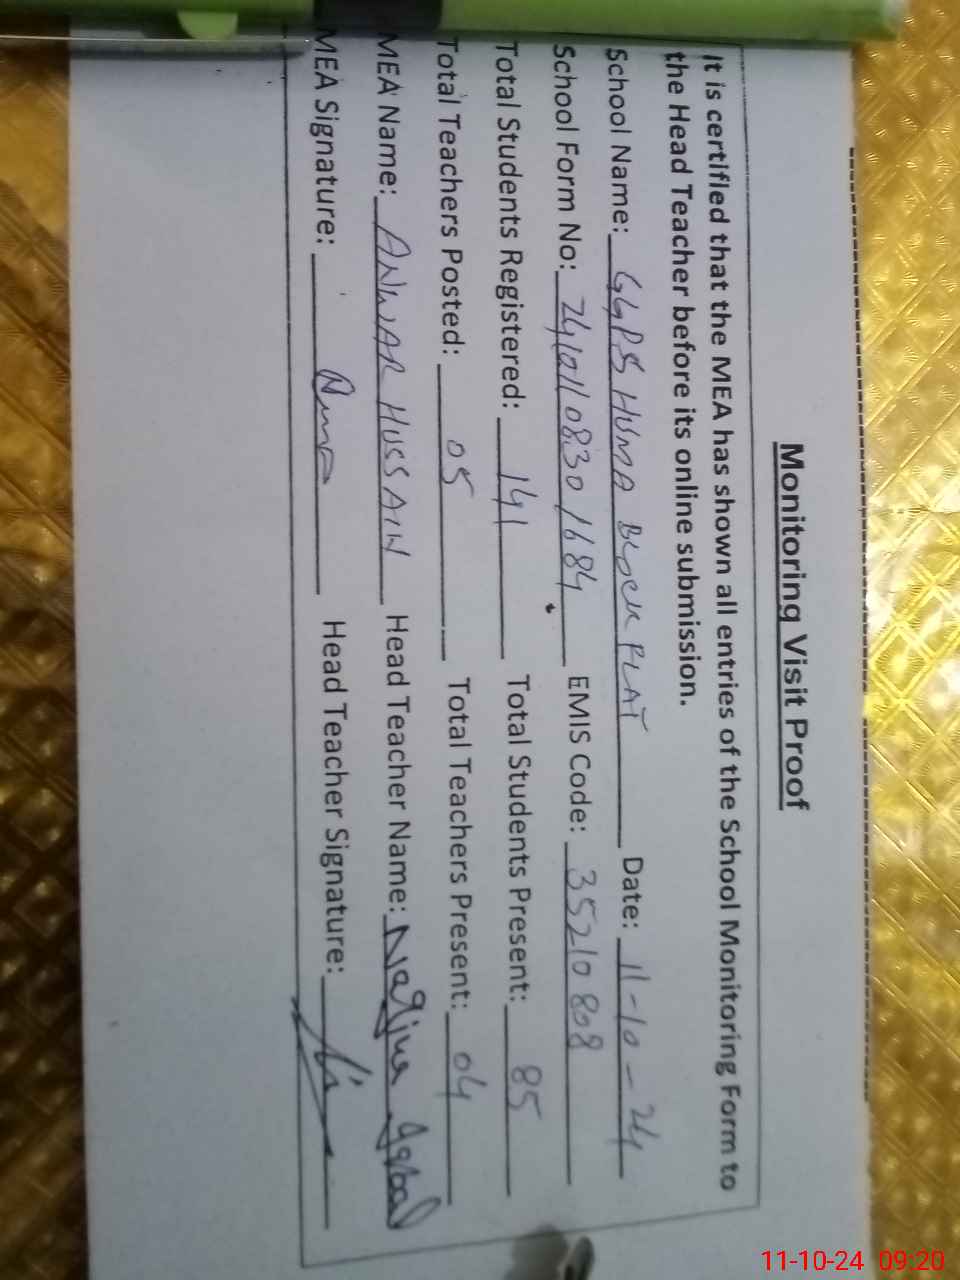 Monitoring Visit Proof
It is certified that the MEA has shown all entries of the School Monitoring Form to
the Head Teacher before its online submission.
School Name: GGPS HUMA BLOCK FLAT Date: 11-10-24
School Form No: 241011 0830 1684 EMIS Code: 35210808
Total Students Registered: 141 Total Students Present: 85
Total Teachers Posted: 05 Total Teachers Present: 04
MEA Name: ANWAR HUSSAIN Head Teacher Name: Nagina Iqbal
MEA Signature: Head Teacher Signature:
11-10-24 09:20